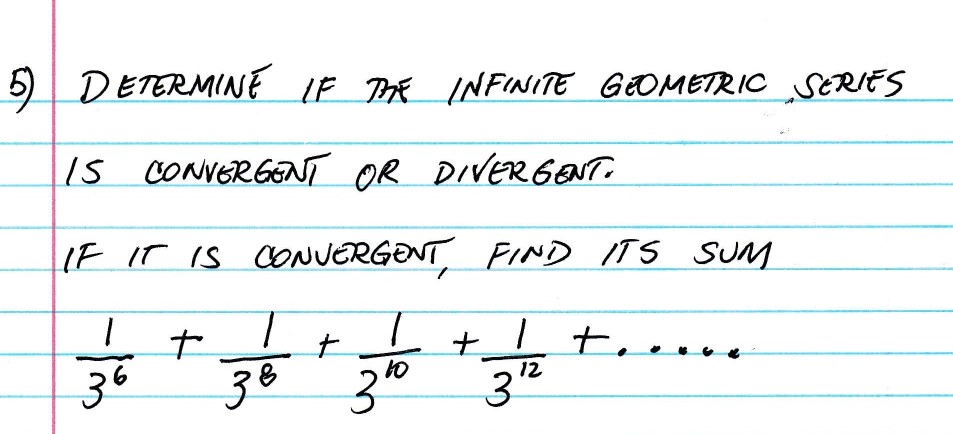 5) DETERMINE IF THE INFINITE GEOMETRIC SERIES
IS CONVERGENT OR DIVERGENT.
IF IT IS CONVERGENT, FIND ITS SUM
1/3^6 + 1/3^8 + 1/3^10 + 1/3^12 + ......